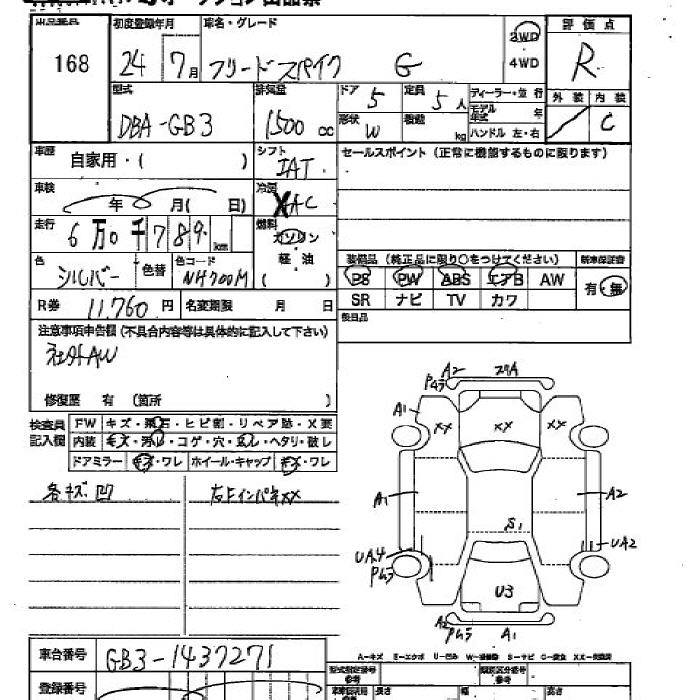 出品番号 初度登録年月 車名・グレード 2WD 4WD 評価点
168 24年 7月 フリードスパイク G R
型式 排気量 ドア 5 定員 5人 ディーラー・並行 外装 内装
DBA-GB3 1500cc 形状 W 積載 kg モデル年式 年 C
ハンドル 左・右
車歴 自家用・( ) シフト IAT セールスポイント(正常に機能するものに限ります)
車検 年 月( 日) 冷房 AC
走行 6万0千789km 燃料 ガソリン 軽油 ( )
色 シルバー 色替 色コード NH700M
装備品(純正品に限り○をつけてください) 新車保証書
PS PW ABS エアB AW 有・無
SR ナビ TV カワ
R券 11,760円 名変期限 月 日 後日品
注意事項申告欄(不具合内容等は具体的に記入して下さい)
社外AW
修復歴 有 (箇所 )
検査員記入欄 FW キズ・飛石・ヒビ割・リペア跡・X要
内装 キズ・汚れ・コゲ・穴・ヘタリ・破レ
ドアミラー キズ・ワレ ホイール・キャップ キズ・ワレ
各キズ.凹 右FインパネXX
A2 Pムラ
A1 XX XX XX
A1 A2
S1
UA4 Pムラ UA2
U3
A2 Pムラ A1
A-キズ E-エクボ U-凹み S-サビ C-腐食
車台番号 GB3-1437271
型式指定番号 参考 類別区分番号 参考
登録番号 長さ 幅 高さ